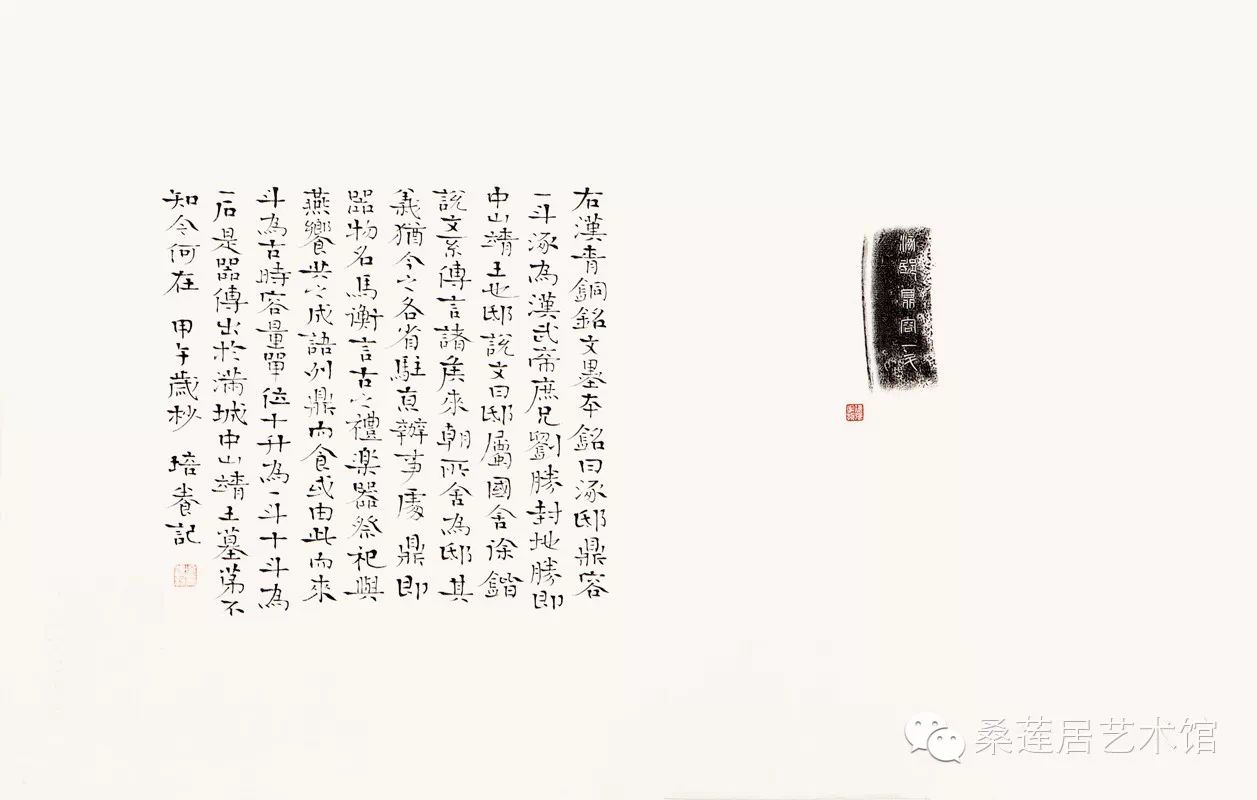 涿邸鼎容一斗
右漢青銅銘文墨本銘曰涿邸鼎容
一斗涿為漢武帝庶兄劉勝封地勝即
中山靖王也邸說文曰邸屬國舍徐鍇
說文系傳言諸侯來朝所舍為邸其
義猶今之各省駐京辦事處鼎即
器物名馬衡言古之禮樂器祭祀與
燕饗共之成語列鼎而食或由此而來
斗為古時容量單位十升為一斗十斗為
一石是器傳出於滿城中山靖王墓第不
知今何在 甲午歲杪 培養記
桑莲居艺术馆